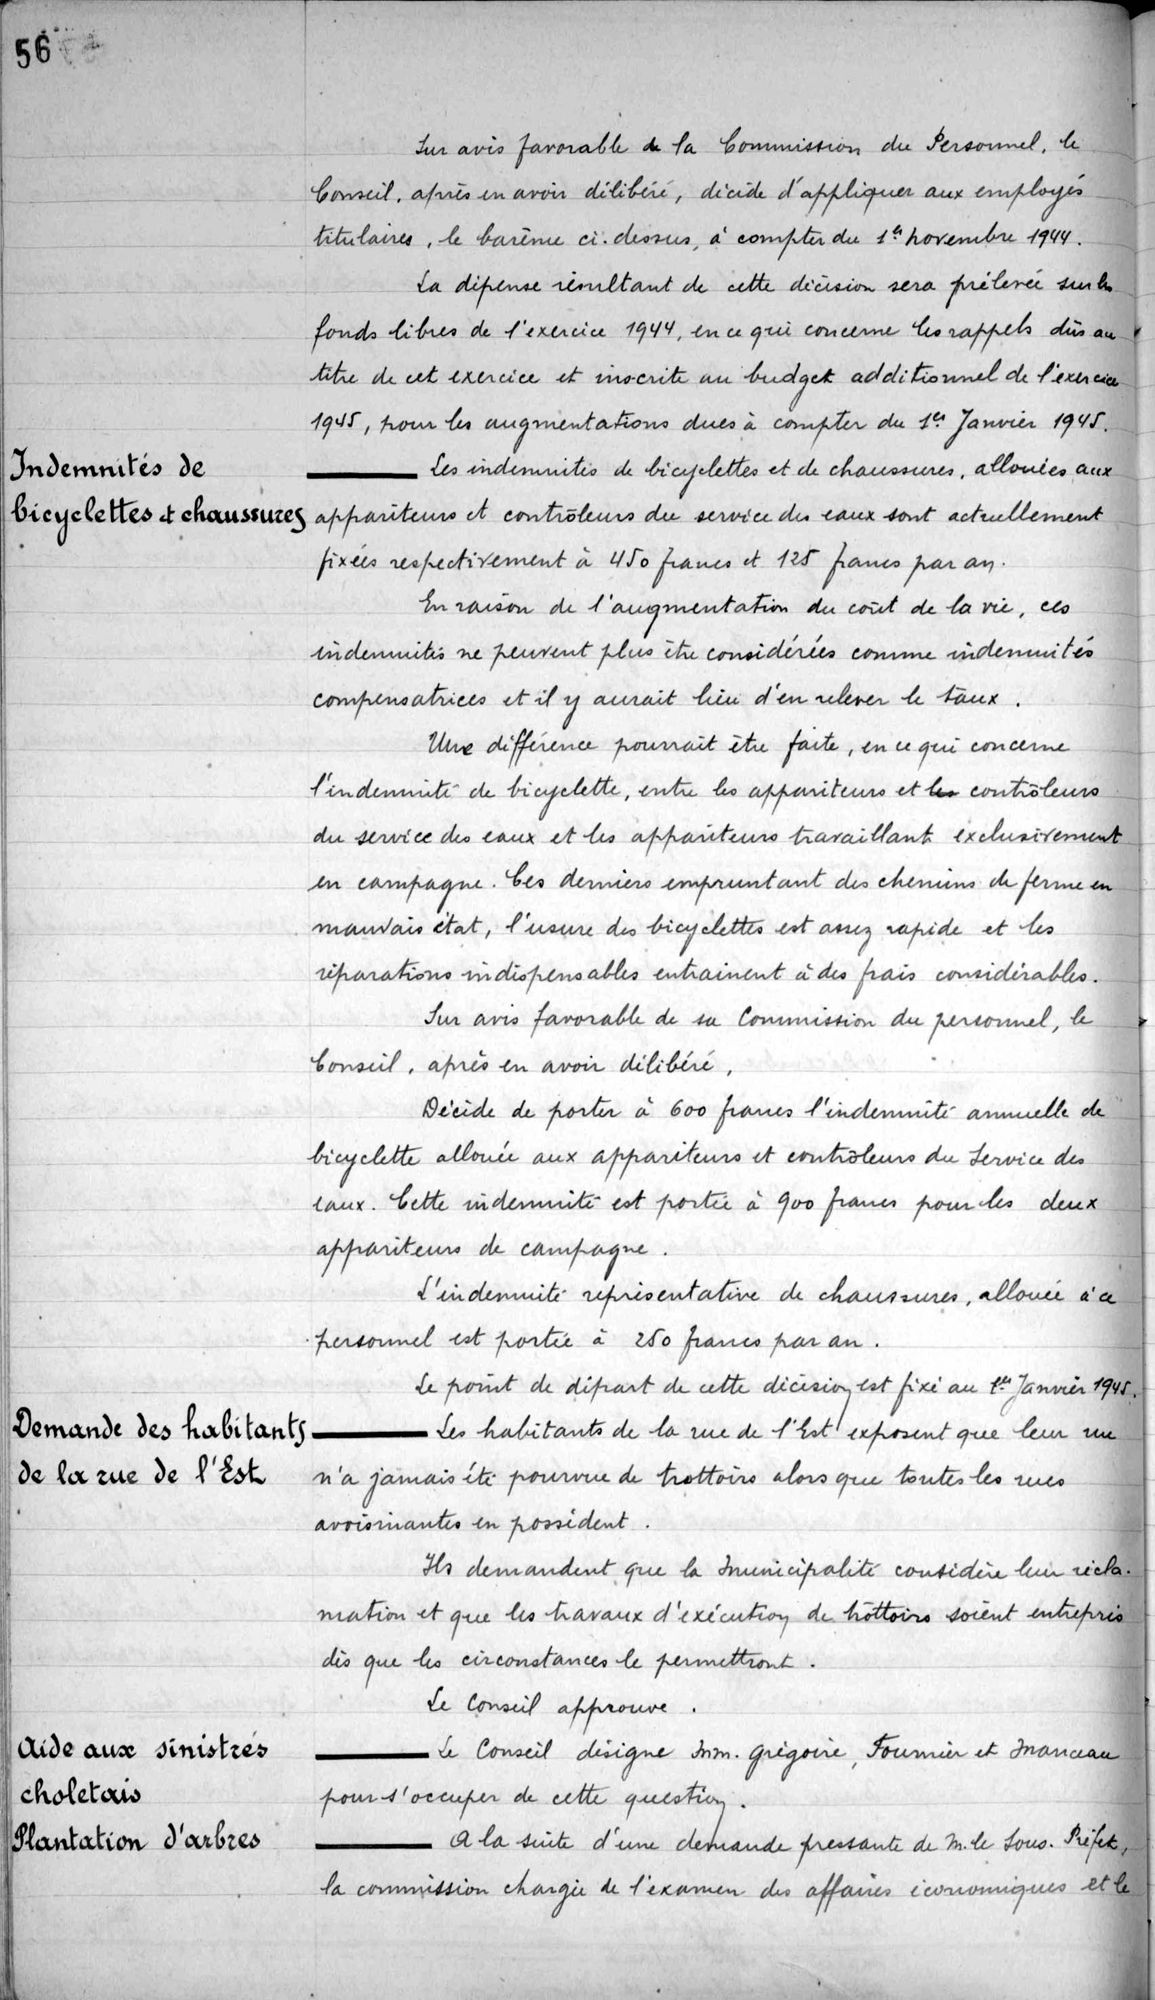 56
Sur avis favorable de la Commission du Personnel, le
Conseil, après en avoir délibéré, décide d'appliquer aux employés
titulaires, le barème ci-dessus, à compter du 1er novembre 1944.
La dépense résultant de cette décision sera prélevée sur les
fonds libres de l'exercice 1944, en ce qui concerne les rappels dûs au
titre de cet exercice et inscrite au budget additionnel de l'exercice
1945, pour les augmentations dues à compter du 1er Janvier 1945.
Indemnités de
bicyclettes et chaussures
Les indemnités de bicyclettes et de chaussures, allouées aux
appariteurs et contrôleurs du service des eaux sont actuellement
fixées respectivement à 450 francs et 125 francs par an.
En raison de l'augmentation du coût de la vie, ces
indemnités ne peuvent plus être considérées comme indemnités
compensatrices et il y aurait lieu d'en relever le taux.
Une différence pourrait être faite, en ce qui concerne
l'indemnité de bicyclette, entre les appariteurs et les contrôleurs
du service des eaux et les appariteurs travaillant exclusivement
en campagne. Ces derniers empruntant des chemins de ferme en
mauvais état, l'usure des bicyclettes est assez rapide et les
réparations indispensables entrainent à des frais considérables.
Sur avis favorable de sa Commission du personnel, le
Conseil, après en avoir délibéré,
Décide de porter à 600 francs l'indemnité annuelle de
bicyclette allouée aux appariteurs et contrôleurs du Service des
eaux. Cette indemnité est portée à 900 francs pour les deux
appariteurs de campagne.
L'indemnité représentative de chaussures, allouée à ce
personnel est portée à 250 francs par an.
Le point de départ de cette décision est fixé au 1er Janvier 1945.
Demande des habitants
de la rue de l'Est
Les habitants de la rue de l'Est exposent que leur rue
n'a jamais été pourvue de trottoirs alors que toutes les rues
avoisinantes en possèdent.
Ils demandent que la Municipalité considère leur récla-
mation et que les travaux d'exécution de trottoirs soient entrepris
dès que les circonstances le permettront.
Le Conseil approuve.
Aide aux sinistrés
choletais
Le Conseil désigne MM. Grégoire, Fournier et Manceau
pour s'occuper de cette question.
Plantation d'arbres
A la suite d'une demande pressante de M. le Sous-Préfet,
la commission chargée de l'examen des affaires économiques et le